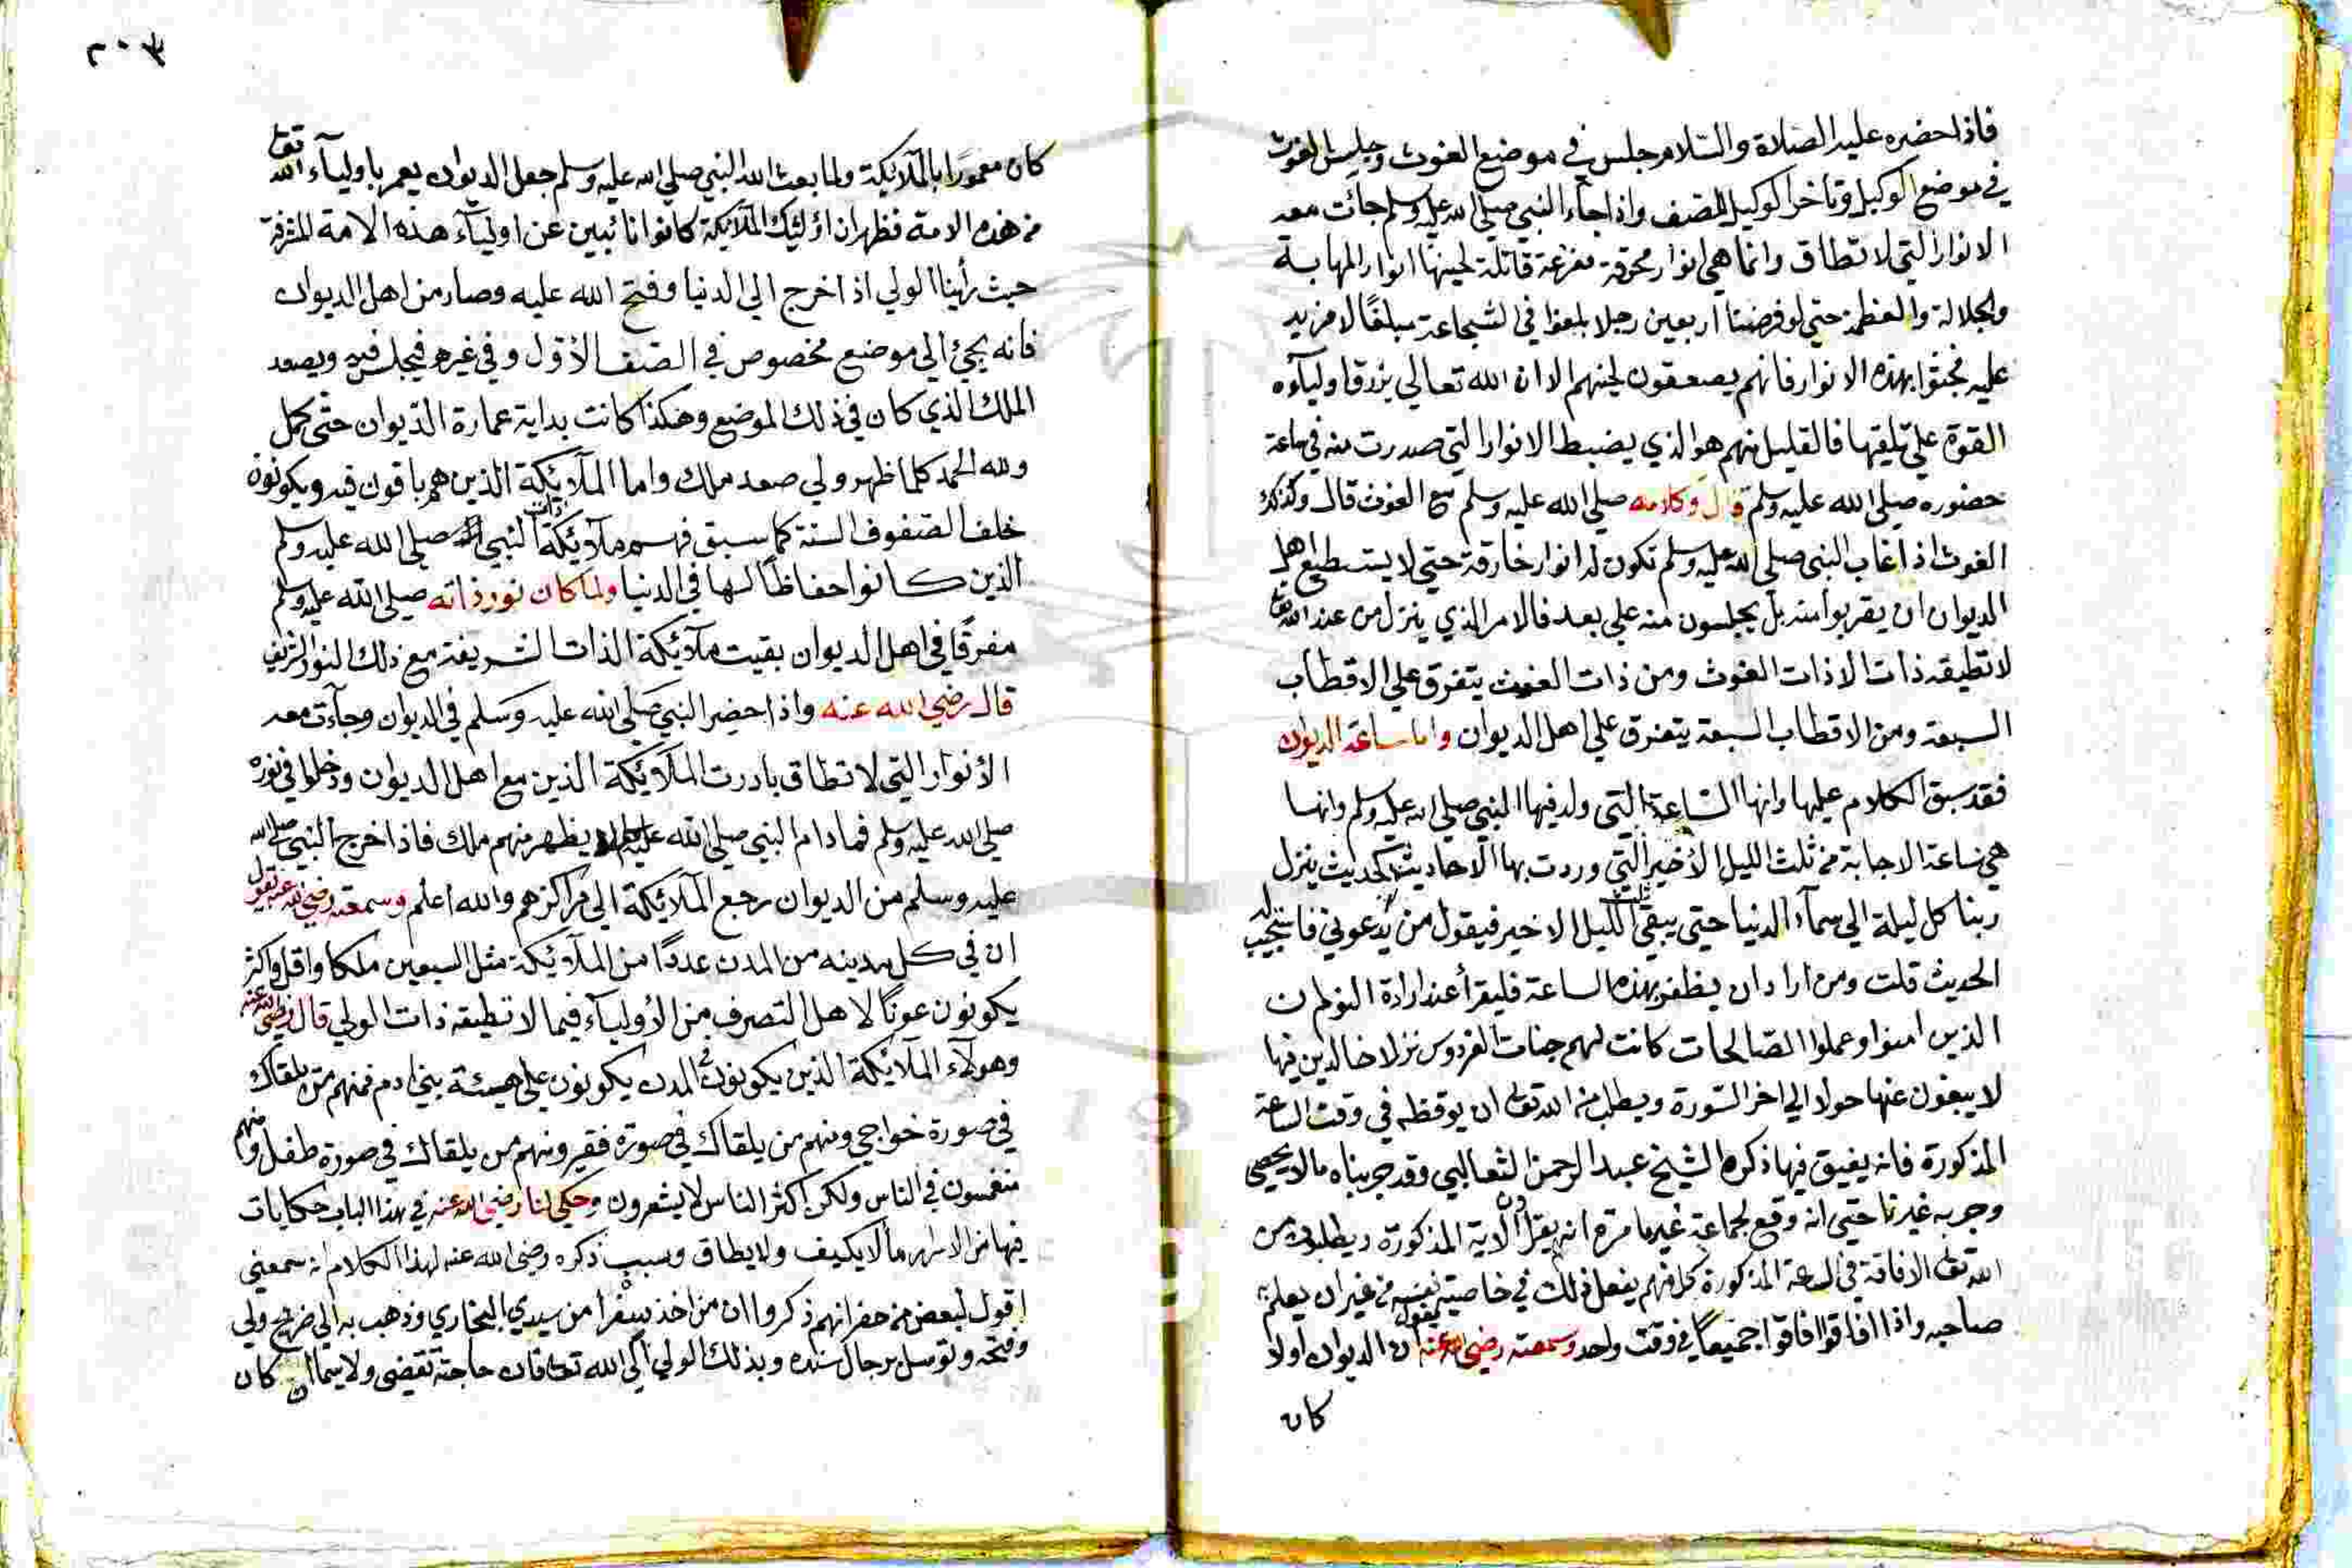 فاذا حضره عليه الصلاة والسلام جلس في موضع الغوث وجلس الغوث
في موضع الوكيل وتأخر الوكيل للصف واذا جاء النبي صلى الله عليه وسلم جائت معه
الانوار التي لا تطاق وانما هي انوار محرقة مفزعة قاتلة لحينها انوار المهابة
والجلالة والعظمة حتى لو فرضنا اربعين رجلا بلغوا في الشجاعة مبلغًا لا مزيد
عليه فجئوا بهذه الانوار فانهم يصعقون لحينهم الا ان الله تعالي يرزق اولياؤه
القوة علي تلقيها فالقليل منهم هو الذي يضبط الانوار التي صدرت منه في ساعة
حضوره صلي الله عليه وسلم قال وكلامه صلي الله عليه وسلم مع الغوث قال وكذلك
الغوث اذا غاب النبي صلي الله عليه وسلم تكون له انوار خارقة حتي لا يستطيع اهل
الديوان ان يقربوا منه بل يجلسون منه علي بعد فالامر الذي ينزل من عند الله تعا
لا تطيقه ذات الا ذات الغوث ومن ذات الغوث يتفرق علي الاقطاب
السبعة ومن الاقطاب السبعة يتفرق علي اهل الديوان واما ساعة الديوان
فقد سبق الكلام عليها وانها الساعة التي ولد فيها النبي صلي الله عليه وسلم وانها
هي ساعة الاجابة من ثلث الليل الأخير التي وردت بها الاحاديث كحديث ينزل
ربنا كل ليلة الي سمآء الدنيا حتي يبقي ثلث الليل الاخير فيقول من يدعوني فاستجيب له
الحديث قلت ومن اراد ان يظفر بهذه الساعة فليقرأ عند ارادة النوم ان
الذين امنوا وعملوا الصالحات كانت لهم جنات الفردوس نزلا خالدين فيها
لا يبغون عنها حولا الي اخر السورة ويطلب من الله تعا ان يوقظه في وقت الساعة
المذكورة فانه يفيق فيها ذكره الشيخ عبد الرحمن الثعالبي وقد جربناه ما لا يحصي
وجربه غيرنا حتي انه وقع لجماعة غير ما مرة انه يقرؤن الاية المذكورة ويطلبون من
الله تعا الافاقة في الساعة المذكورة كل منهم يفعل ذلك في خاصية نفسه من غير ان يعلم به
صاحبه واذا افاقوا افاقوا جميعًا في وقت واحد وسمعته رضي الله عنه يقول ان الديوان اولا
كان
٢٠٣
كان معمورًا بالملآئكة ولما بعث الله النبي صلي الله عليه وسلم جعل الديوان يعمر باوليآء الله تعا
من هذه الامة فظهر ان اولئيك الملآئكة كانوا نائبين عن اوليآء هذه الامة المشرفة
حيث رأينا الولي اذا خرج الي الدنيا وفتح الله عليه وصار من اهل الديوان
فانه يجئ الي موضع مخصوص في الصف الأول وفي غيره فيجلس فيه ويصعد
الملك الذي كان في ذلك الموضع وهكذا كانت بداية عمارة الديوان حتى كمل
ولله الحمد كلما ظهر ولي صعد ملك واما الملآئكة الذين هم باقون فيه ويكونون
خلف الصفوف الستة كما سبق فهم ملآئكة ذات النبي صلي الله عليه وسلم
الذين كانوا حفاظًا لها في الدنيا ولما كان نور ذاته صلي الله عليه وسلم
مفرقًا في اهل الديوان بقيت ملآئكة الذات الشريفة مع ذلك النور الشريف
قال رضي الله عنه واذا حضر النبي صلي الله عليه وسلم في الديوان وجآءت معه
الأنوار التي لا تطاق بادرت الملآئكة الذين مع اهل الديوان ودخلوا في نوره
صلي الله عليه وسلم فما دام النبي صلي الله عليه وسلم لا يظهر منهم ملك فاذا خرج النبي صلي الله
عليه وسلم من الديوان رجع الملآئكة الي مراكزهم والله اعلم وسمعته رضي الله عنه يقول
ان في كل مدينه من المدن عددًا من الملآئكة مثل السبعين ملكا واقل واكثر
يكونون عونًا لاهل التصرف من الأوليآء فيما لا تطيقه ذات الولي قال رضي الله عنه
وهولآء الملآئكة الذين يكونون في المدن يكونون علي هيئة بني ادم فمنهم من يلقاك
في صورة خواجي ومنهم من يلقاك في صورة فقير ومنهم من يلقاك في صورة طفل وهم
منغمسون في الناس ولكن اكثر الناس لا يشعرون وحكي لنا رضي الله عنه في هذا الباب حكايات
فيها من الاسرار ما لا يكيف ولا يطاق وسبب ذكره رضي الله عنه لهذا الكلام انه سمعني
اقول لبعض من حضر انهم ذكروا ان من اخذ سفرا من سيدي البخاري وذهب به الي ضريح ولي
وفتحه وتوسل برجال سنده وبذلك الولي الي الله تعا فان حاجته تقضى ولا سيما ان كان